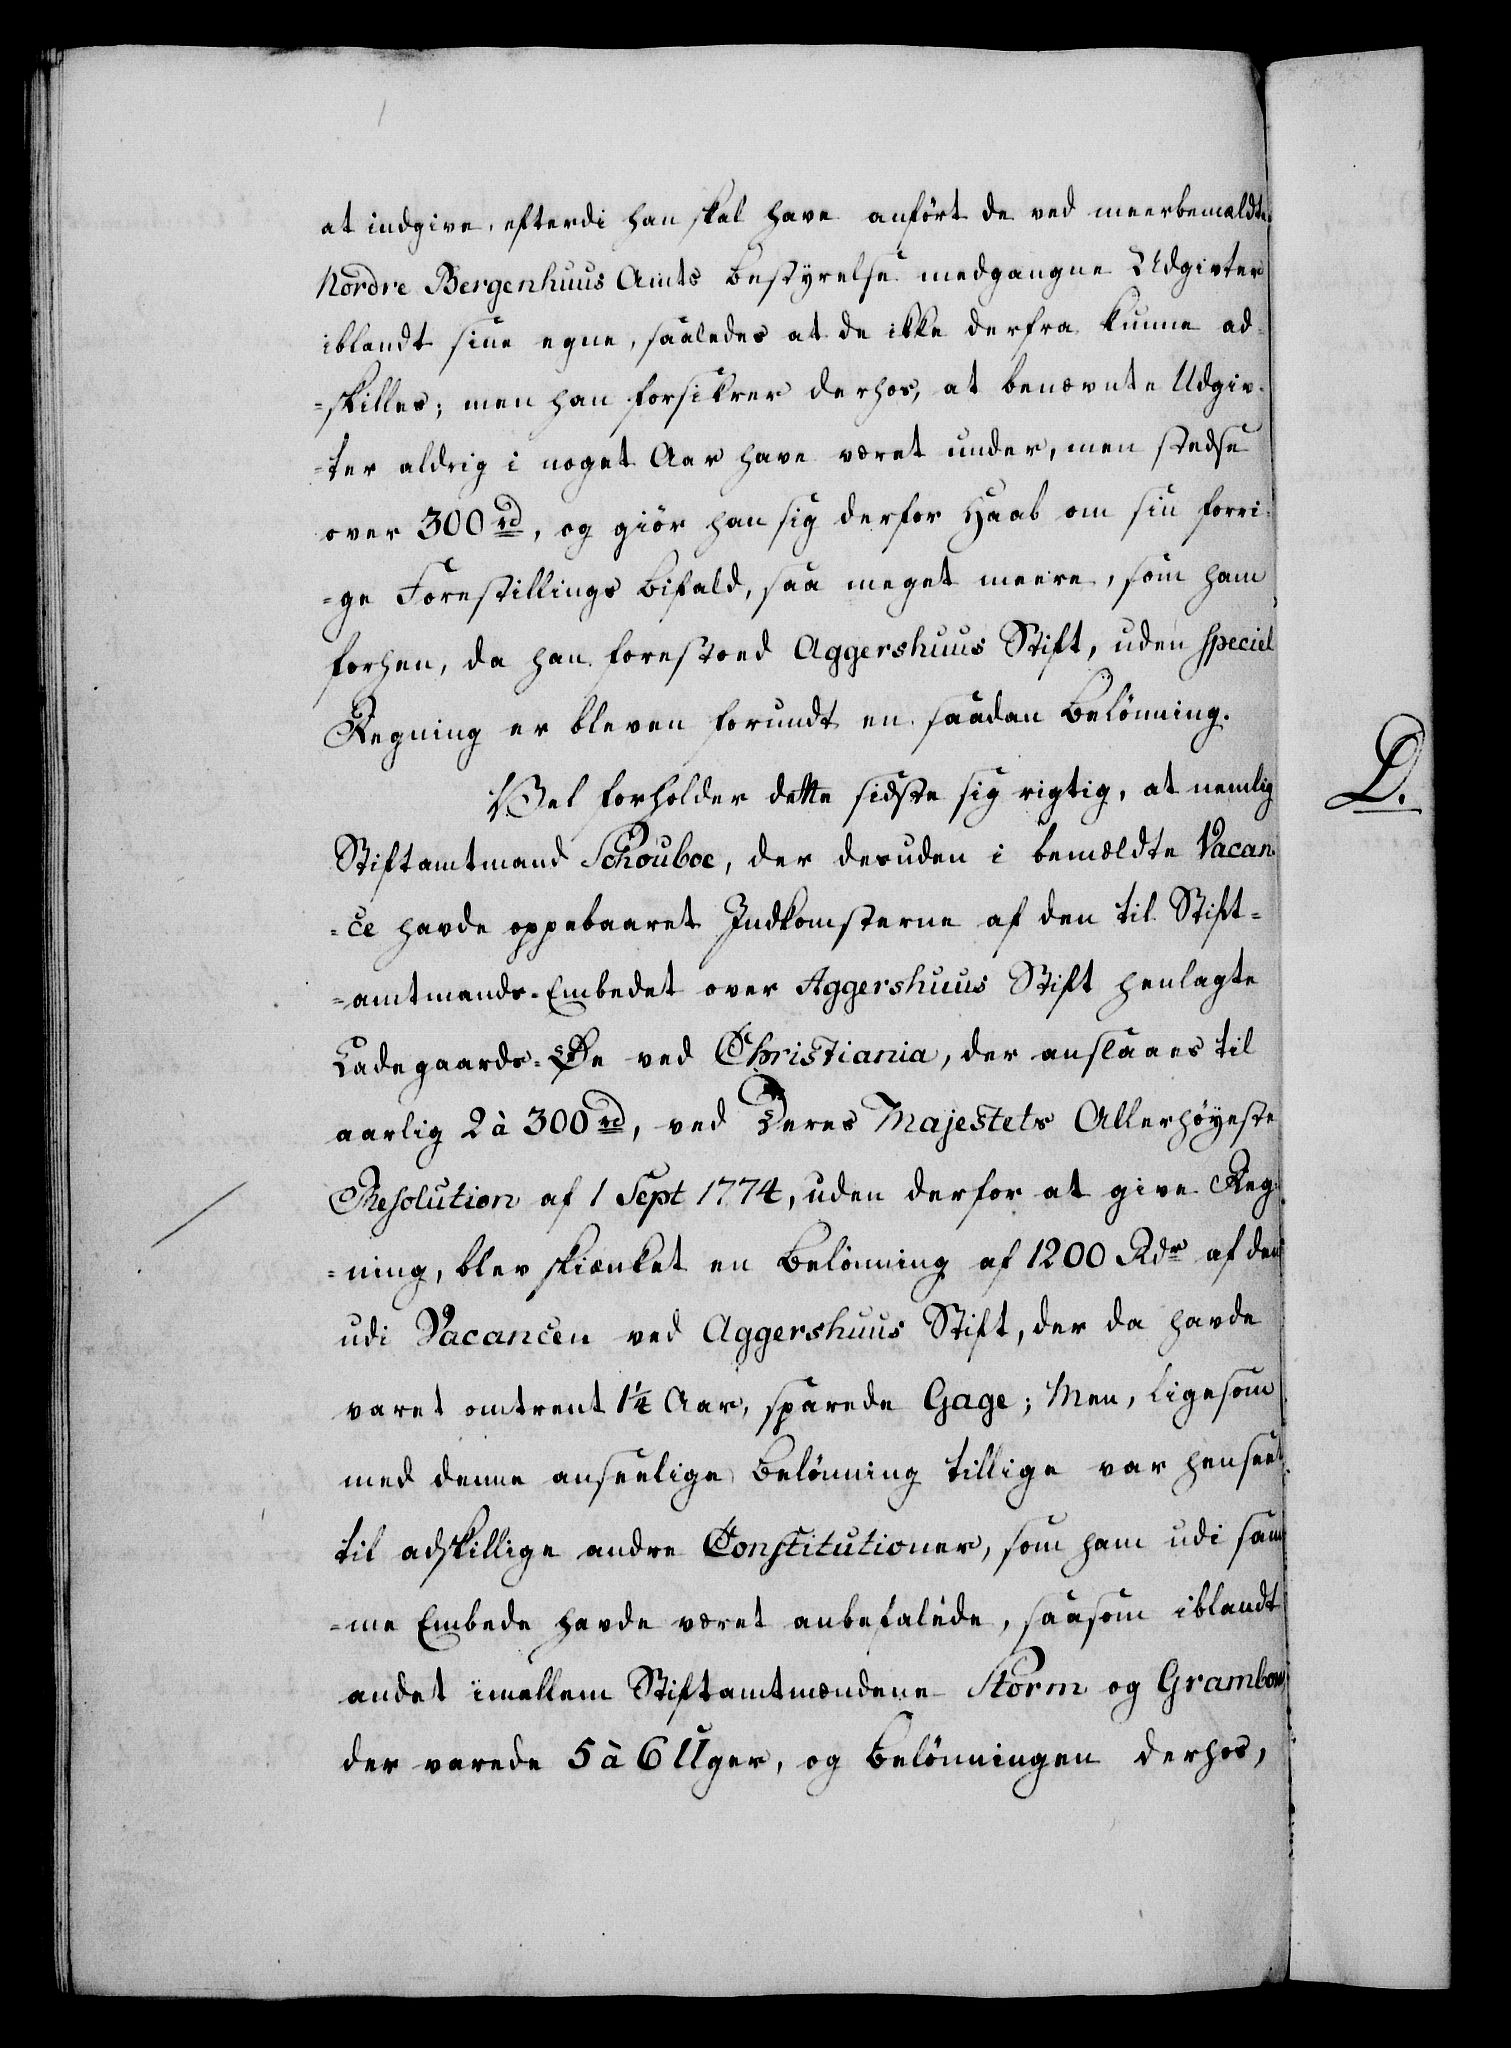 at indgive, efterdi han skal have anført de ved meerbemældte
Nordre Bergenhuus Amts Bestyrelse medgangne Udgivter
iblandt sine egne, saaledes at de ikke derfra kunne ad-
=skilles; men han forsikrer derhos, at benævnte Udgiv-
=ter aldrig i noget Aar have været under, men stedse
over 300 rd, og giör han sig derfor Haab om sin forri-
=ge Forestillings Bifald, saa meget meere, som ham
forhen, da han forestoed Aggershuus Stift, uden speciel
Regning er bleven forundt en saadan Belönning.
Vel forholder dette sidste sig rigtig, at nemlig
Stiftamtmand Schouboe, der desuden i bemældte Vacan-
=ce havde oppebaaret Indkomsterne af den til Stift-
=amtmands-Embedet over Aggershuus Stift henlagte
Ladegaards-Øe ved Christiania, der anslaaes til
aarlig 2 à 300 rd, ved Deres Majestets Allerhöyeste
Resolution af 1 Sept 1774, uden derfor at give Reg-
=ning, blev skienket en Belönning af 1200 Rdr af den
udi Vacancen ved Aggershuus Stift, der da havde
varet omtrent 1¼ Aar, sparede Gage; Men, ligesom
med denne anseelige Belönning tillige var henseet
til adskillige andre Constitutioner, som ham udi sam-
=me Embede havde været anbefalede, saasom iblandt
andet imellem Stiftamtmændene Storm og Grambow,
der varede 5 à 6 Uger, og Belönningen derhos,
D.